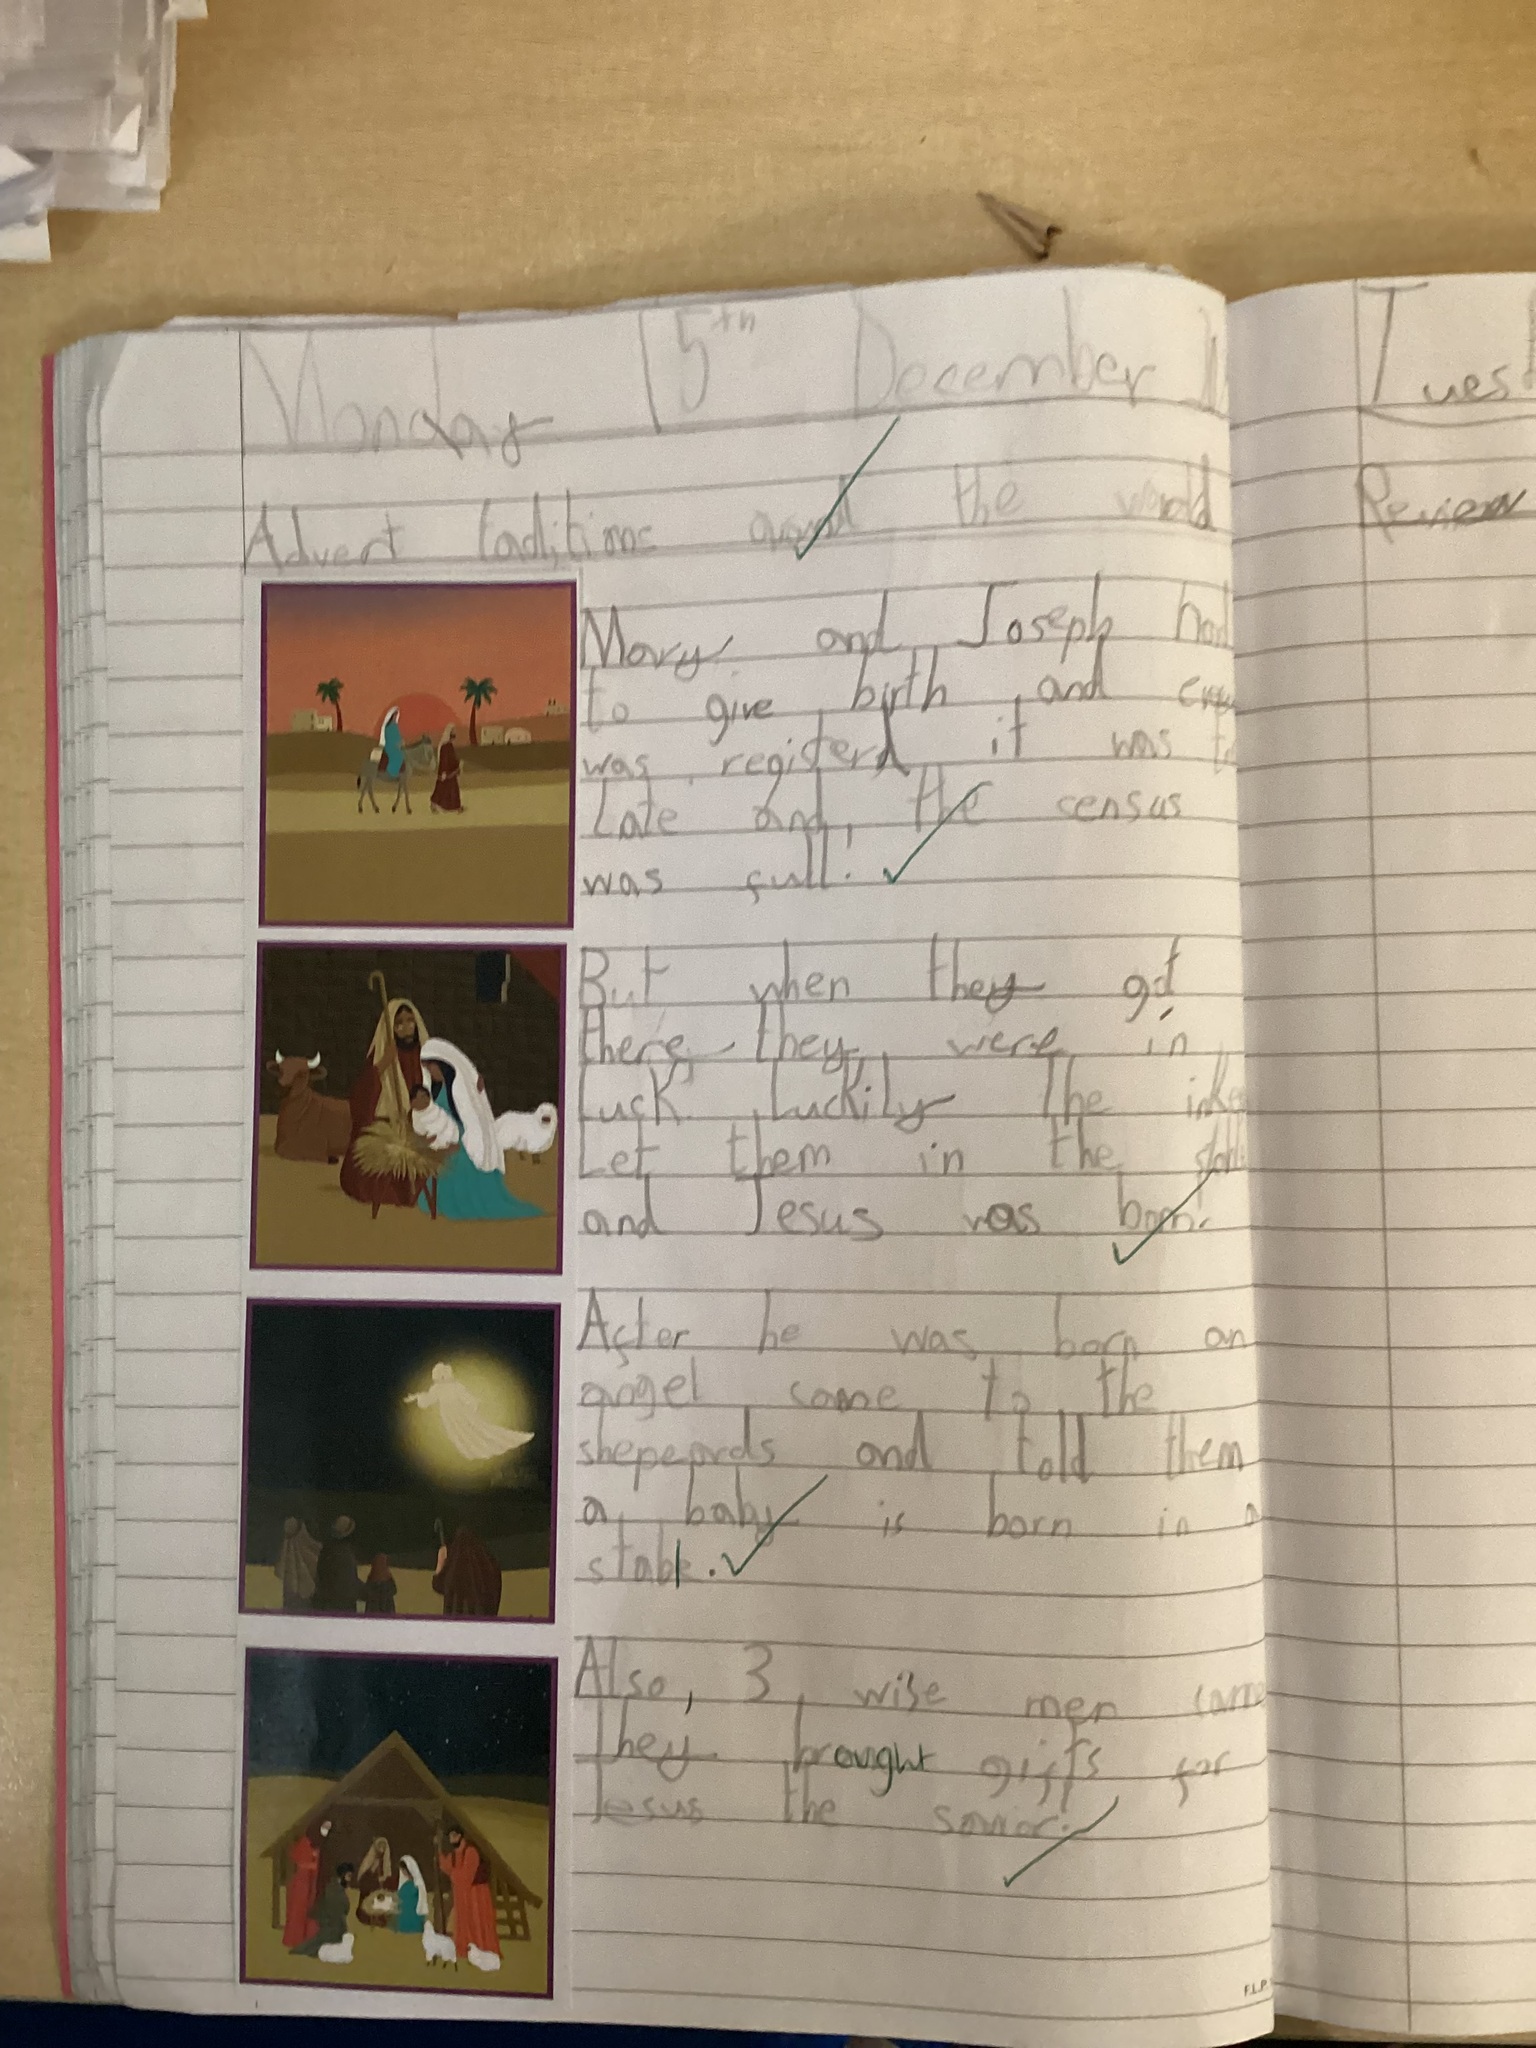 Monday 15th December
Advert taditions around the world
Mary and Joseph had
to give birth and
was registerd it was
Late and, the census
was full!
But when they got
there, they, were in
Luck. Luckily the
Let them in the
and Jesus was born.
After he was born an
angel came to the
shepeards and told them
a baby is born in a
stable.
Also, 3 wise men came
They brought gifts for
Jesus the savior.
F.L.P
Tues
Review